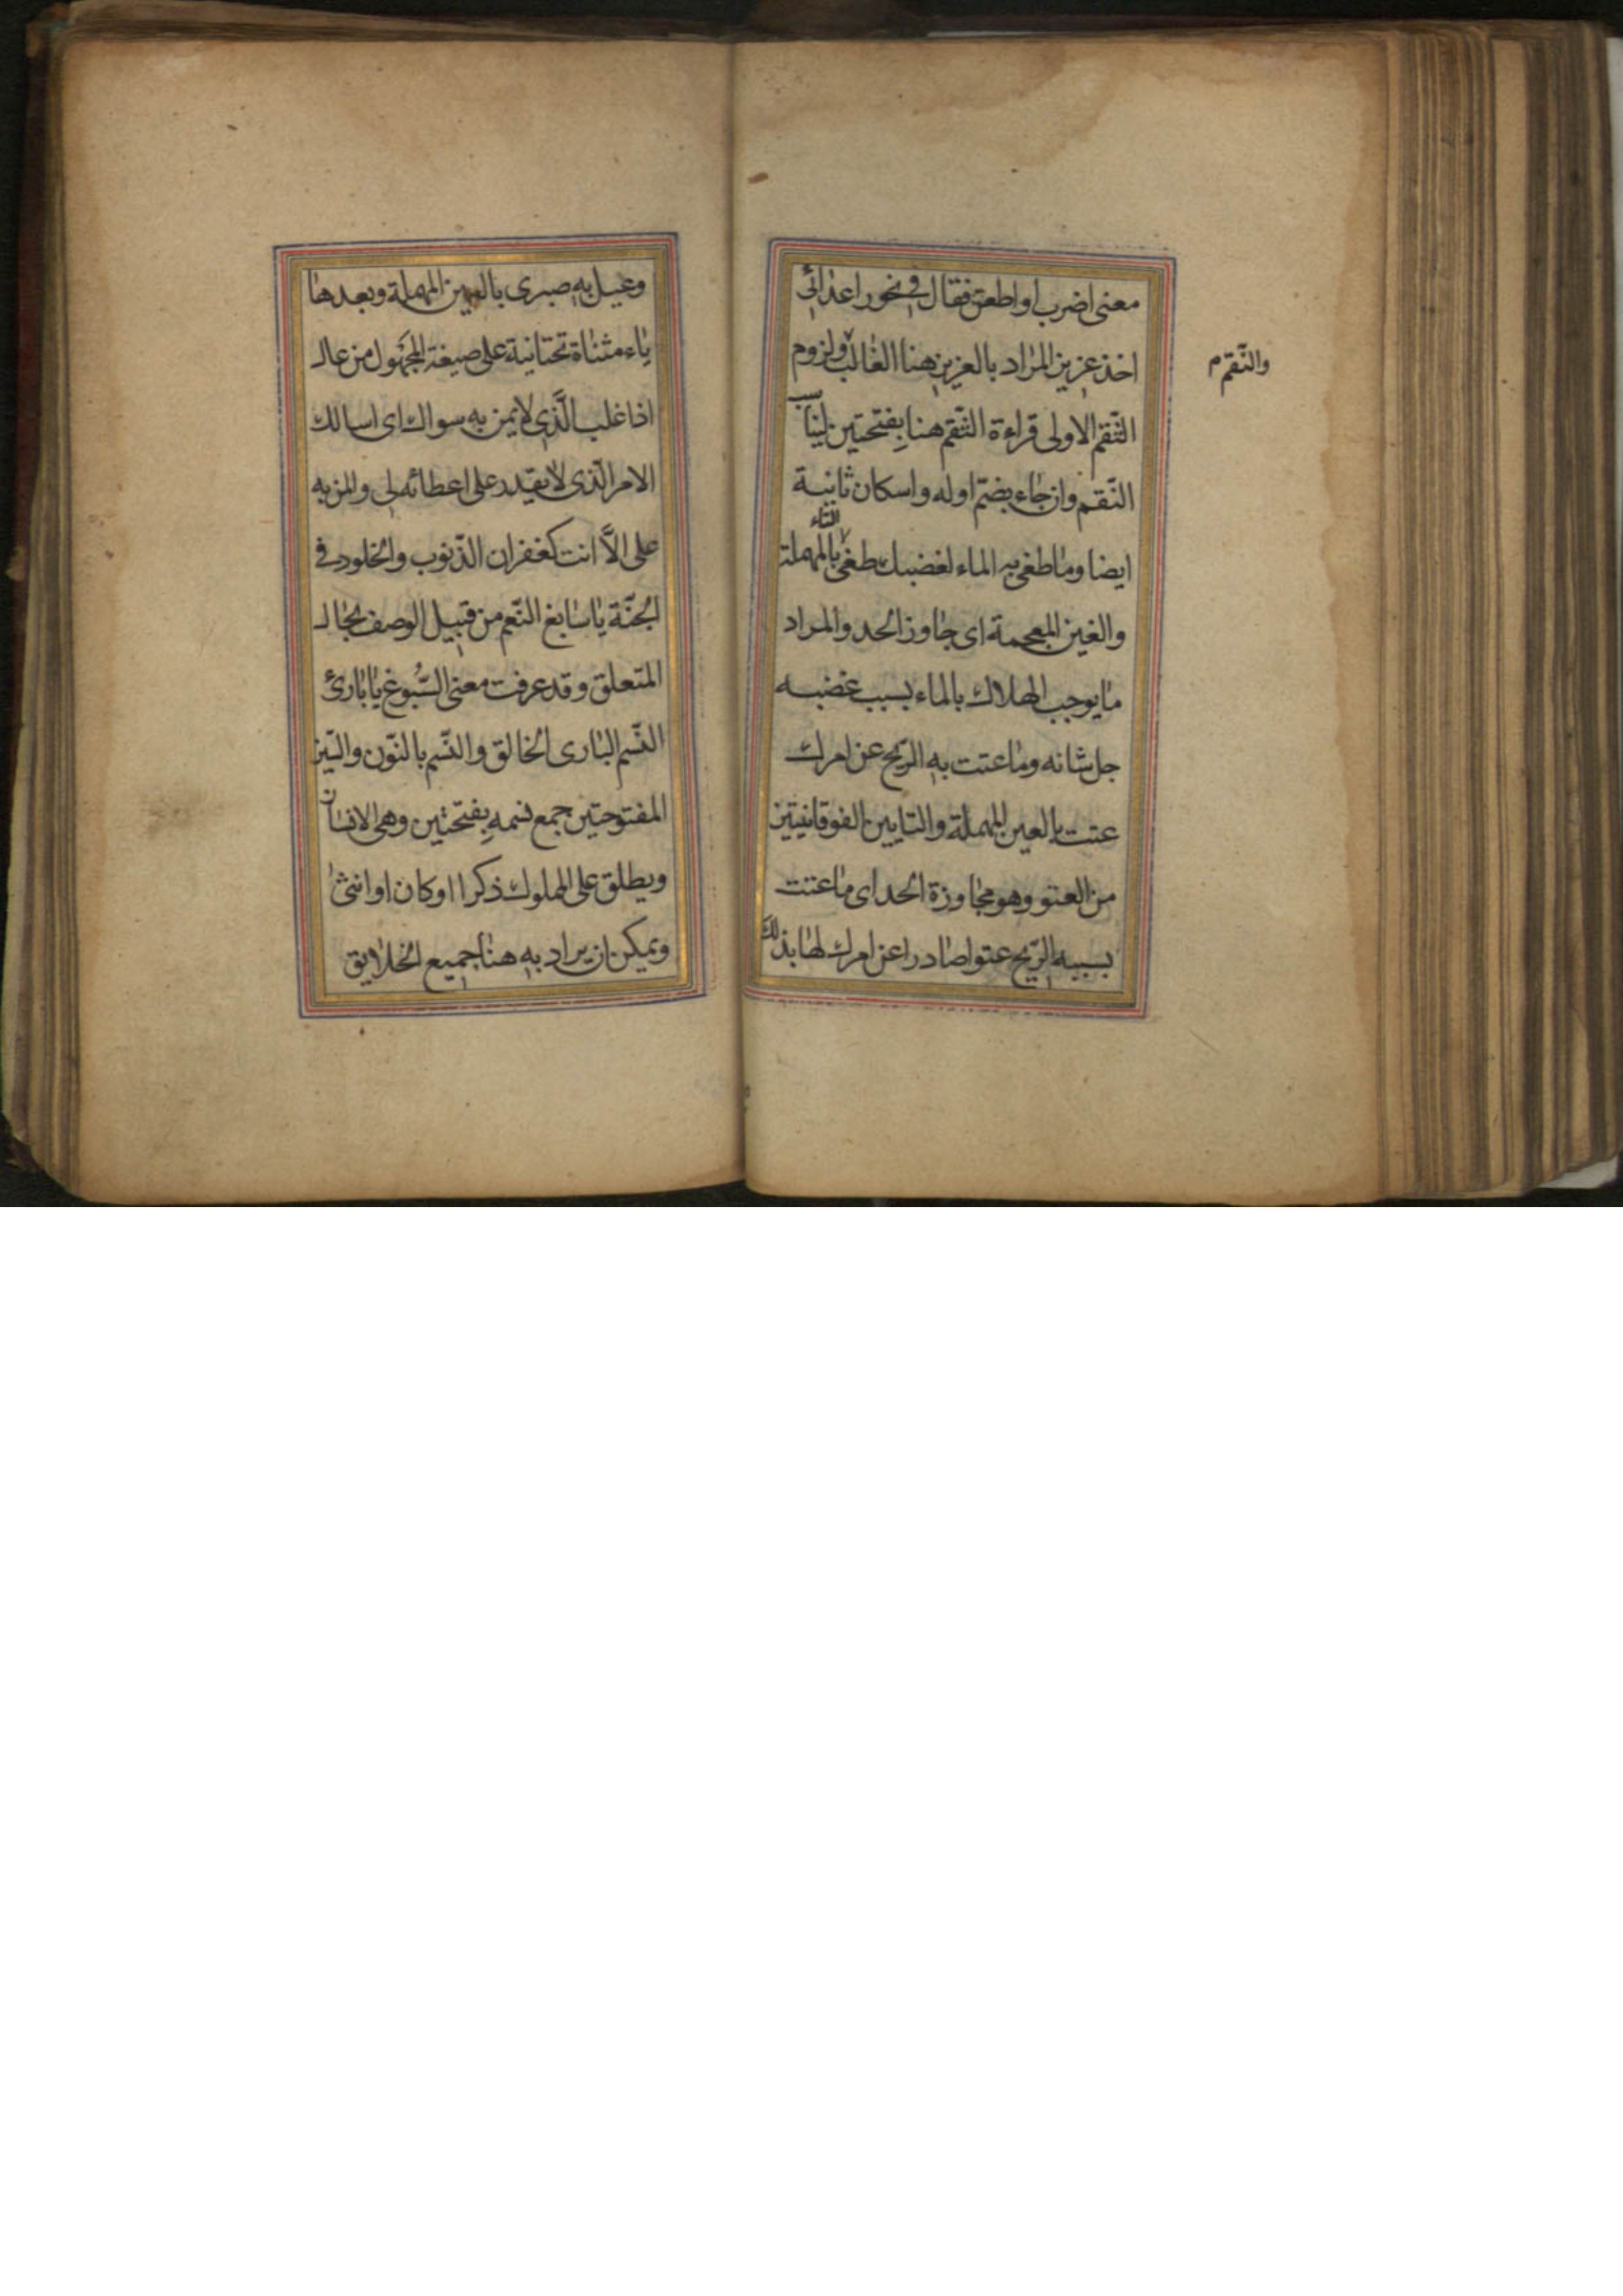 معنى اضرب او اطعن فقال في نحور اعدائى
اخذ عزيز المراد بالعزيز هنا الغالب ولزوم
والنّقم م
النّقم الاولى قراءة النّقم هنا بفتحتين ليناسب
النّقم وان جاء بضمّ اوله واسكان ثانية
ايضا وما طغى به الماء لغضبك طغى بالطاء المهملة
والغين المعجمة اى جاوز الحد والمراد
ما يوجب الهلاك بالماء بسبب غضبه
جل شانه وما عتت به الرّيح عن امرك
عتت بالعين المهملة والتايين الفوقانيتين
من العتو وهو مجاوزة الحد اى ما عتت
بسببه الرّيح عتوا صادرا عن امرك لها بذلك
وعيل به صبرى بالعين المهملة وبعدها
ياء مثناة تحتانية على صيغة المجهول من عال
اذا غلب الّذى لا يمن به سواك اى اسالك
الامر الّذى لا يقدر على اعطائه لى والمن به
على الّا انت كغفران الذّنوب والخلود فى
الجنّة يا سابغ النّعم من قبيل الوصف بحال
المتعلق وقد عرفت معنى السّبوغ يا بارئ
النّسم البارى الخالق والنّسم بالنّون والسّين
المفتوحتين جمع نسمه بفتحتين وهى الانسان
ويطلق على المملوك ذكرا او كان او انثى
ويمكن ان يراد به هنا جميع الخلايق